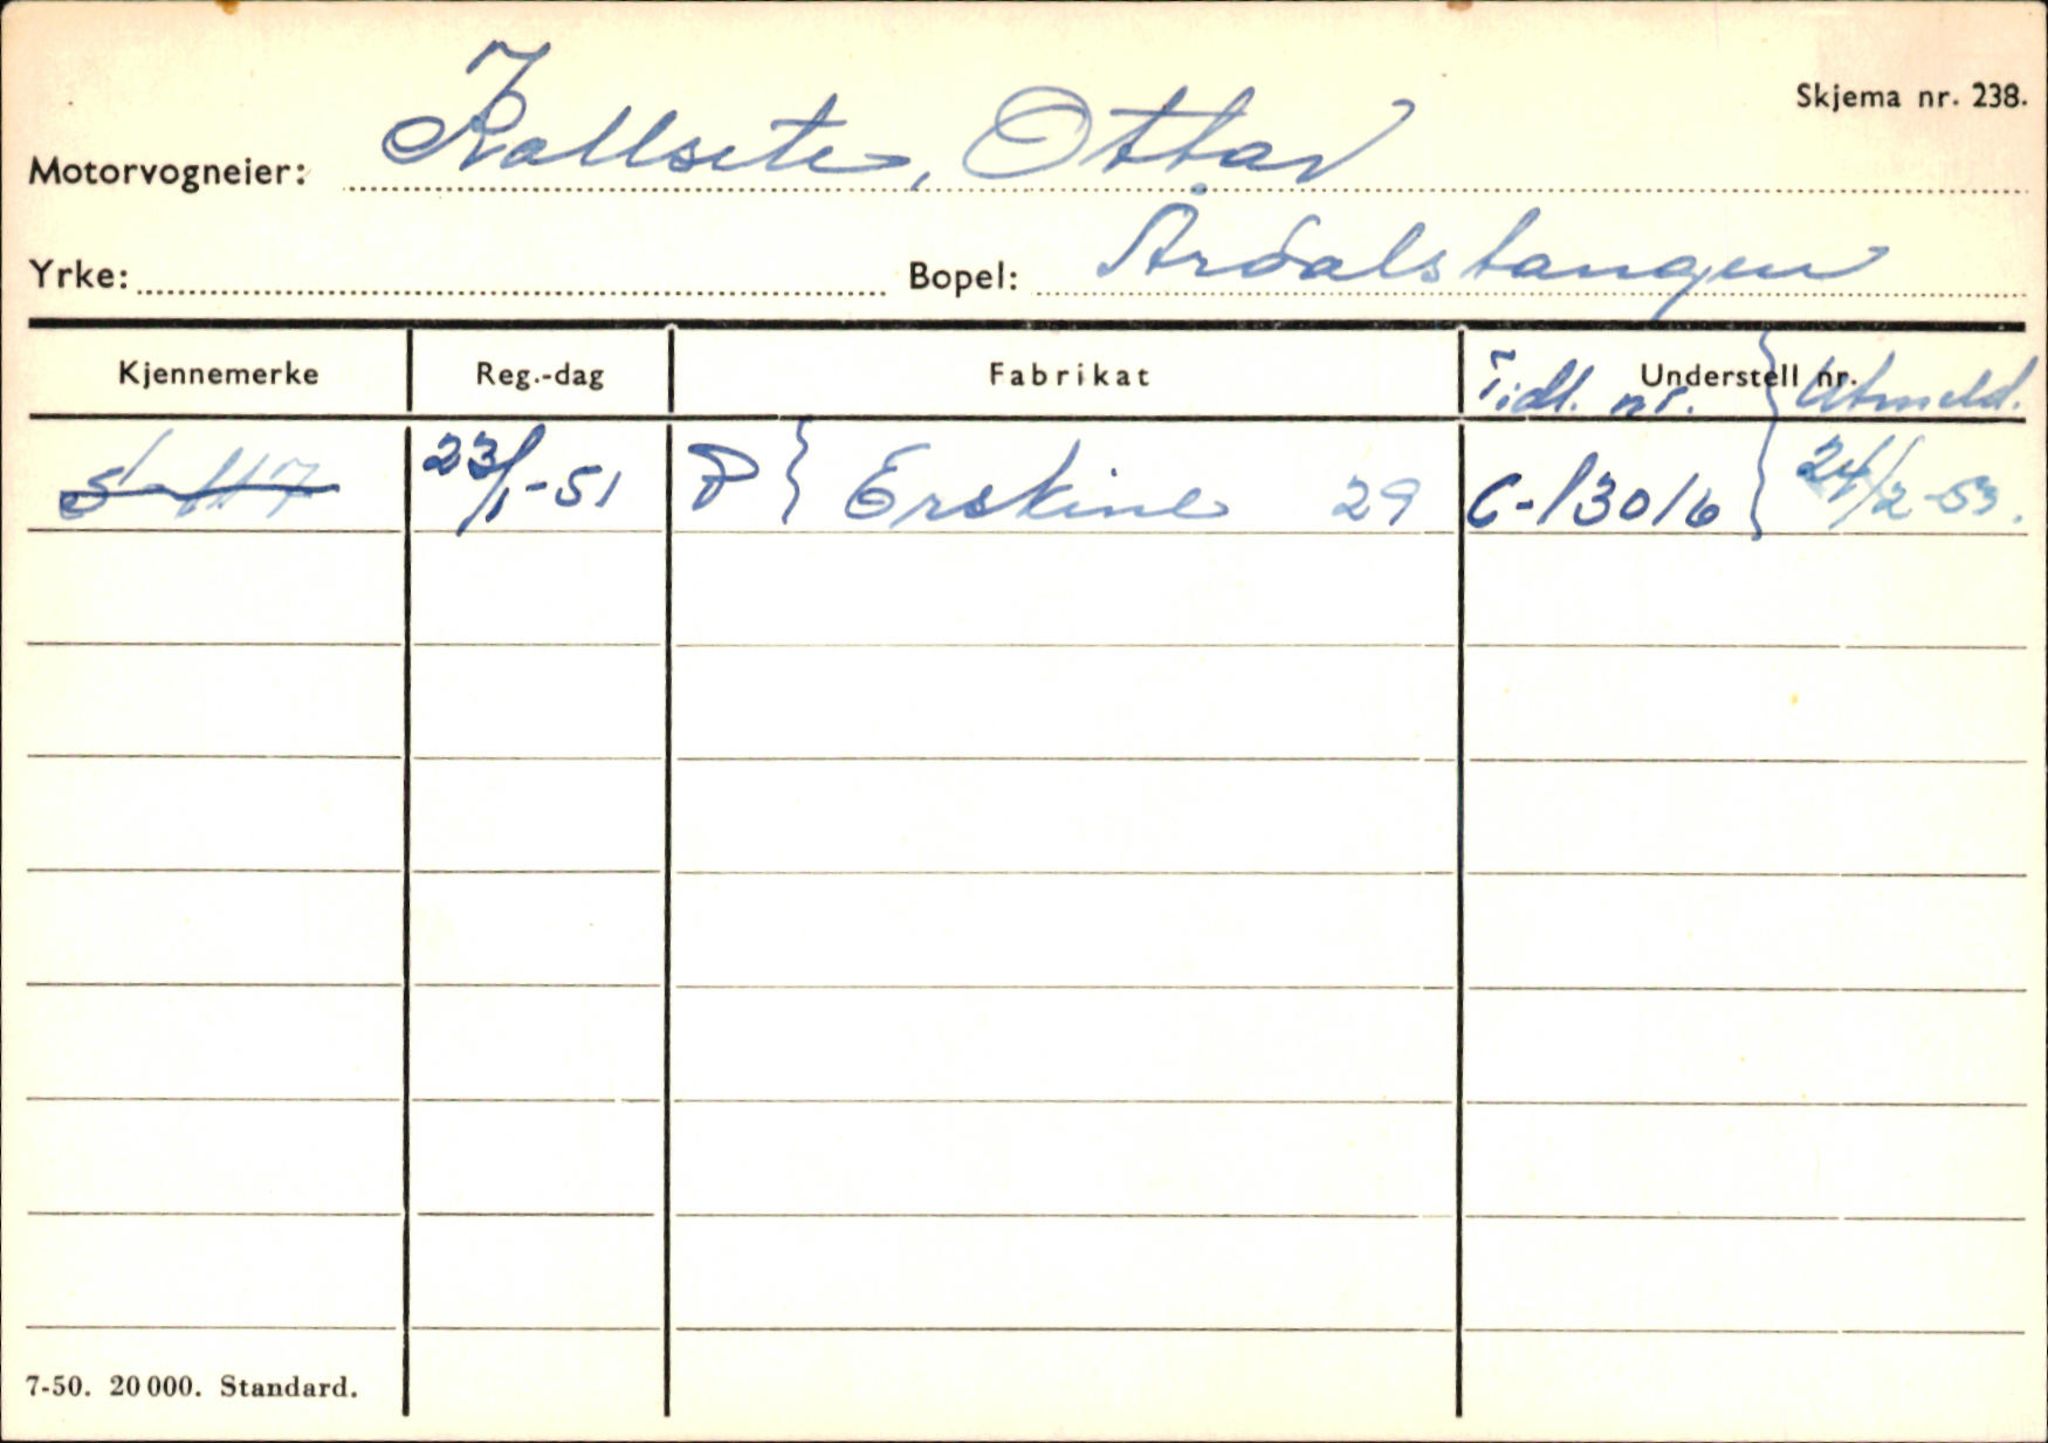 Skjema nr. 238.
Motorvogneier: Kallsete, Ottar
Yrke: Bopel: Årdalstangen
Kjennemerke Reg.-dag Fabrikat Understell nr.
Tidl. nr. } Utmeld.
23/1-51 P } Erskine 29 C-13016 } 24/2-53.
7-50. 20 000. Standard.